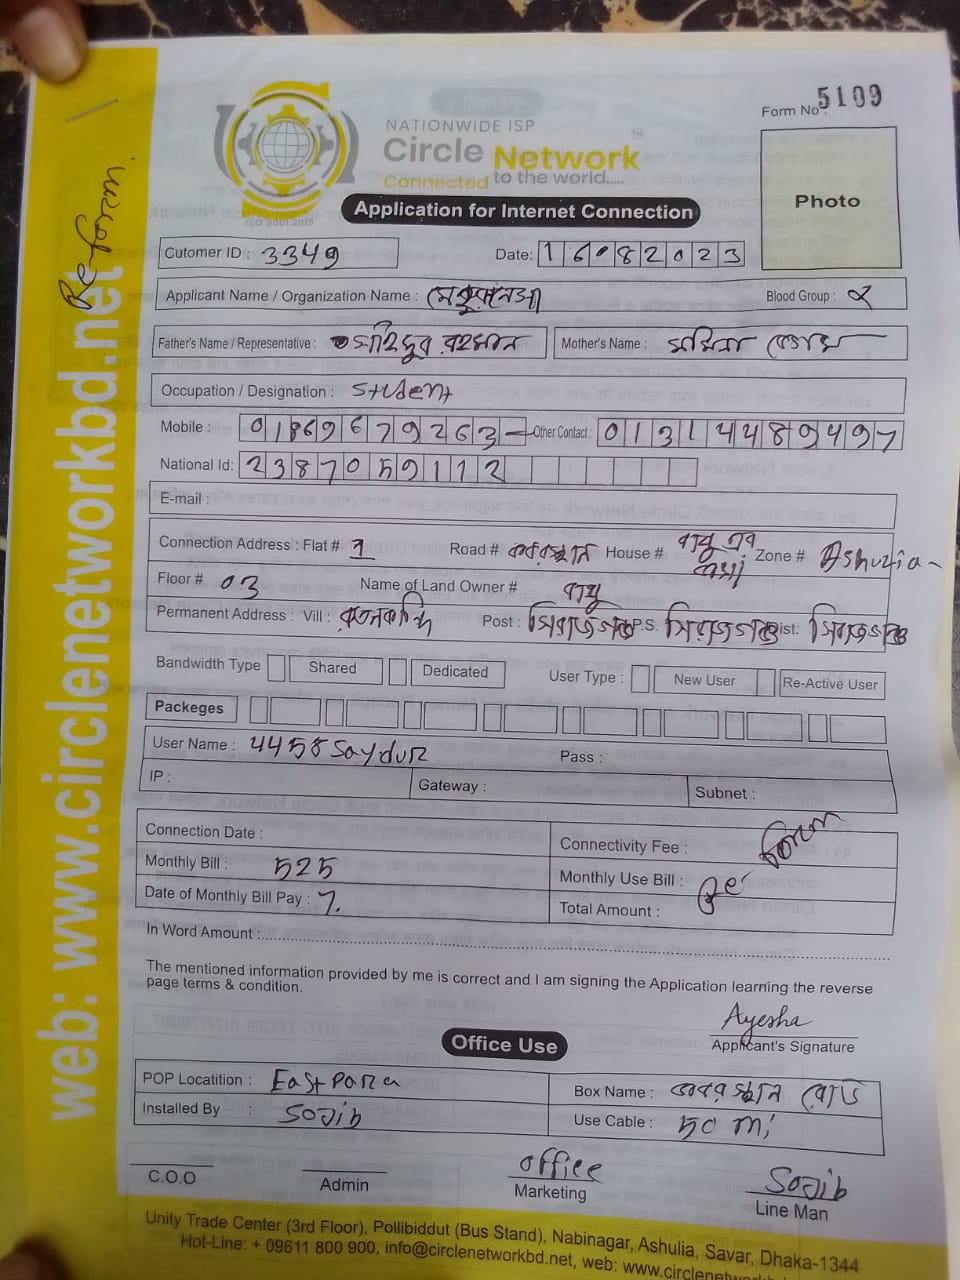 Form No : 5109
NATIONWIDE ISP
Circle Network TM
Connected to the world.....
ISO 9001:2015
Application for Internet Connection
Photo
web: www.circlenetworkbd.net
Cutomer ID : 3349
Date: 16 08 2023
Applicant Name / Organization Name :
Blood Group :
Father's Name / Representative : সাইদুর রহমান
Mother's Name :
Occupation / Designation : Student
Mobile : 01869679263
Other Contact : 01314489497
National Id: 2387059112
E-mail :
Connection Address : Flat # 7 Road # কবরস্থান House # Zone # Ashulia
Floor # 03 Name of Land Owner # বাবু
Permanent Address : Vill : Post : সিরাজগঞ্জ P.S. সিরাজগঞ্জ Dist: সিরাজগঞ্জ
Bandwidth Type Shared Dedicated User Type : New User Re-Active User
Packeges
User Name : 4458saydur Pass :
IP : Gateway : Subnet :
Connection Date : Connectivity Fee :
Monthly Bill : 525 Monthly Use Bill :
Date of Monthly Bill Pay : 7. Total Amount :
In Word Amount :
The mentioned information provided by me is correct and I am signing the Application learning the reverse
page terms & condition.
Ayesha
Applicant's Signature
Office Use
POP Locatition : East Para Box Name : কবরস্থান রোড
Installed By : Sojib Use Cable : 50 mi
C.O.O Admin office Marketing Sojib Line Man
Unity Trade Center (3rd Floor), Pollibiddut (Bus Stand), Nabinagar, Ashulia, Savar, Dhaka-1344
Hot-Line: + 09611 800 900, info@circlenetworkbd.net, web: www.circlenetworkbd